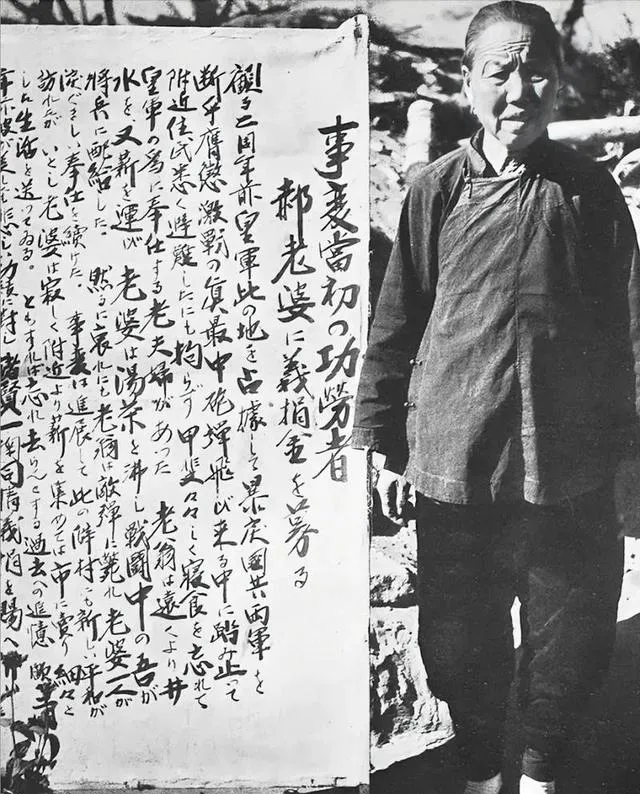 事変當初の功労者
郝老婆に義捐金を募る
顧る二周年前皇軍此の地を占據して暴戻國共両軍を
断乎膺懲激戦の真最中砲弾飛び来る中に踏み止って
附近住民悉く避難したにも拘らず甲斐々々しく寝食を忘れて
皇軍の為に奉仕する老夫婦があった 老翁は遠くより井
水を又薪を運び 老婆は湯茶を沸し戦闘中の吾が
将兵に配給した。 然るに哀れにも老翁は敵弾に斃れ老婆一人が
涙ぐましい奉仕を續けた。 事変は進展して此の僻村にも新しい平和が
訪れたが いとし老婆は寂しく附近より薪を集めては市に賣り細々と
した生活を送ってゐる。 ともすれば忘れ去らんとする過去の追憶
諸賢一掬同情義捐を賜へ